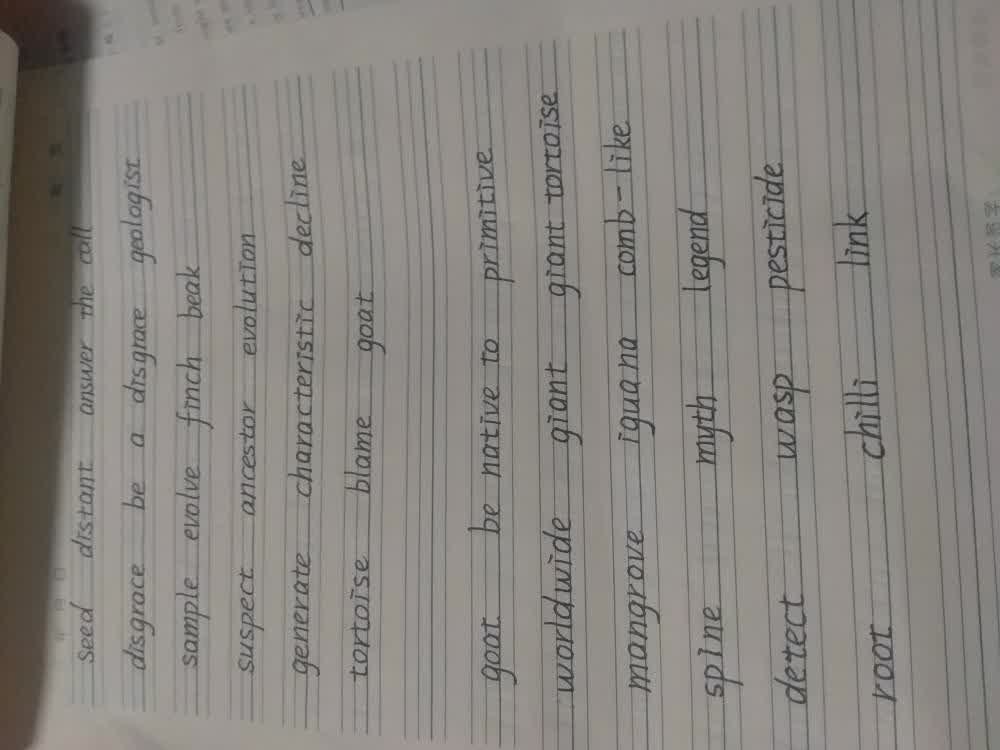 seed distant answer the call
disgrace be a disgrace geologist
sample evolve finch beak
suspect ancestor evolution
generate characteristic decline
tortoise blame goat
goat be native to primitive
worldwide giant giant tortoise
mangrove iguana comb-like
spine myth legend
detect wasp pesticide
root chilli link